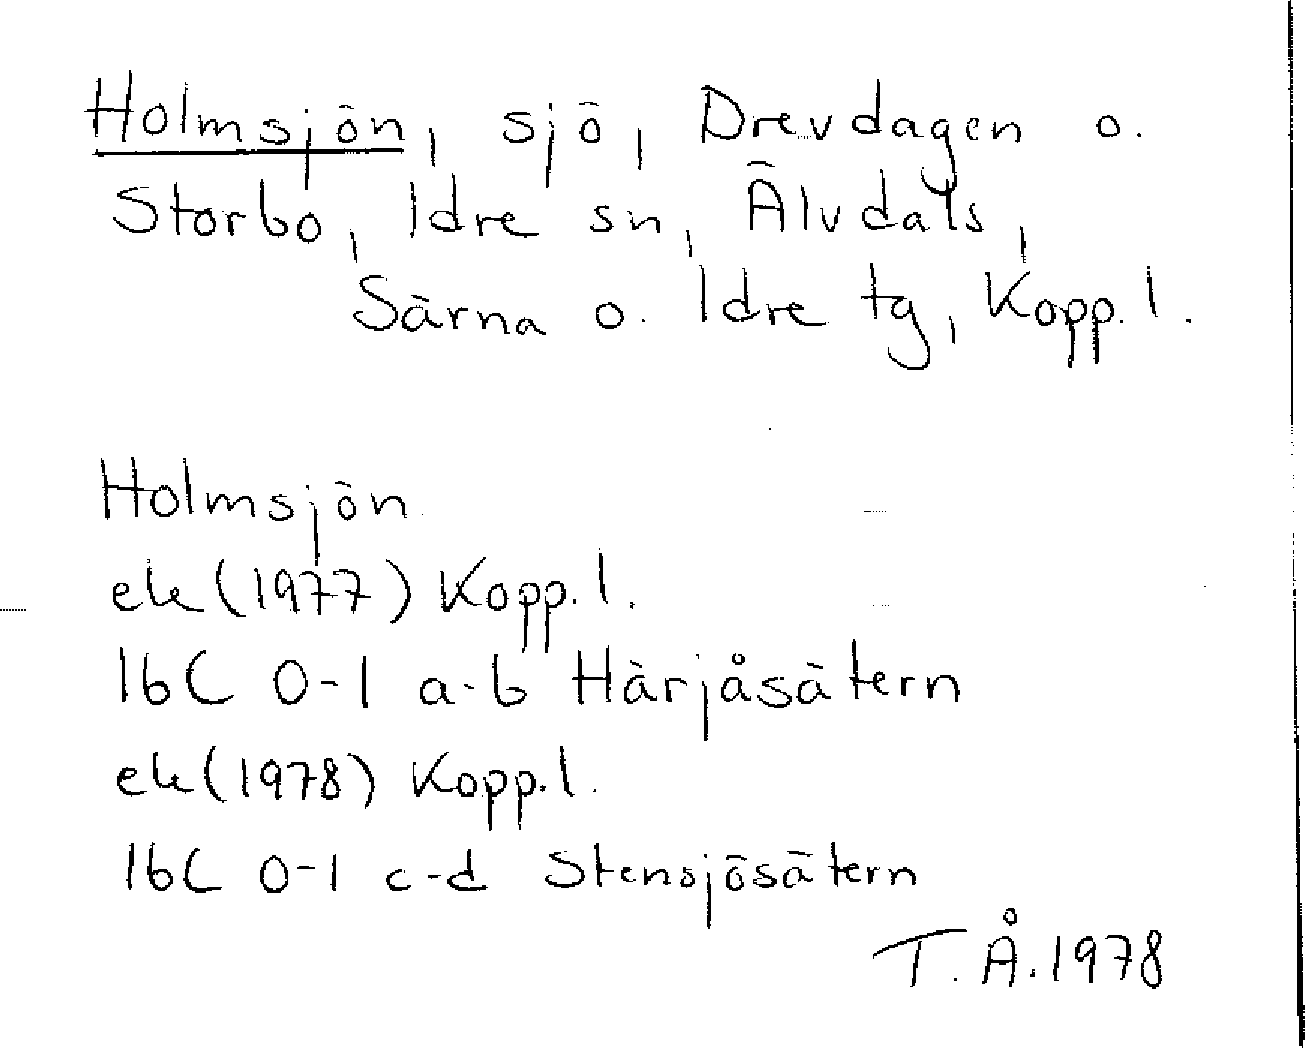 Holmsjön, sjö, Drevdagen o.
Storbo, Idre sn, Älvdals,
Särna o. Idre tg, Kopp. l.
Holmsjön
ek (1977) Kopp. l.
16C 0-1 a-b Härjåsätern
ek (1978) Kopp. l.
16C 0-1 c-d Stensjösätern
T. Å. 1978